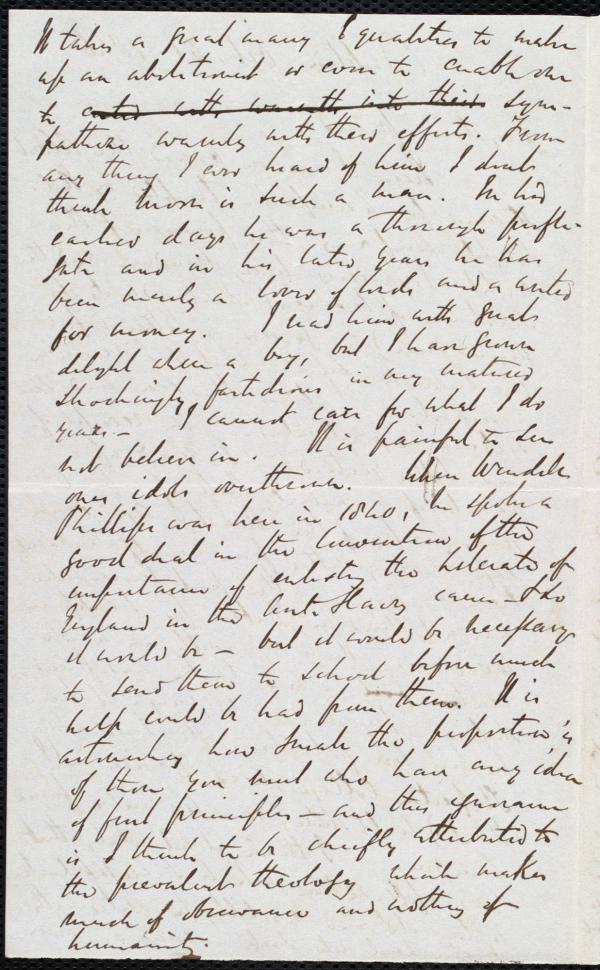 It takes a great many qualities to make
up an abolitionist or even to enable one
to enter with warmth into their sym-
pathize warmly with their efforts. From
any thing I ever heard of him I don't
think Moore is such a man. In his
earlier days he was a thorough profli-
gate and in his later years he has
been merely a lover of lords and a writer
for money. I read him with great
delight when a boy, but I have grown
shockingly fastidious in my matured
years - I cannot care for what I do
not believe in. It is painful to see
ones idols overthrown. When Wendell
Phillips was here in 1840, he spoke a
good deal in the Convention of the
importance of enlisting the literate of
England in the Anti Slavery cause - & so
it would be - but it would be necessary
to send them to school before much
help could be had from them. It is
astonishing how small the proportion is
of those you meet who have any idea
of first principles - and this ignorance
is I think to be chiefly attributed to
the prevalent theology which makes
much of observance and nothing of
humanity.